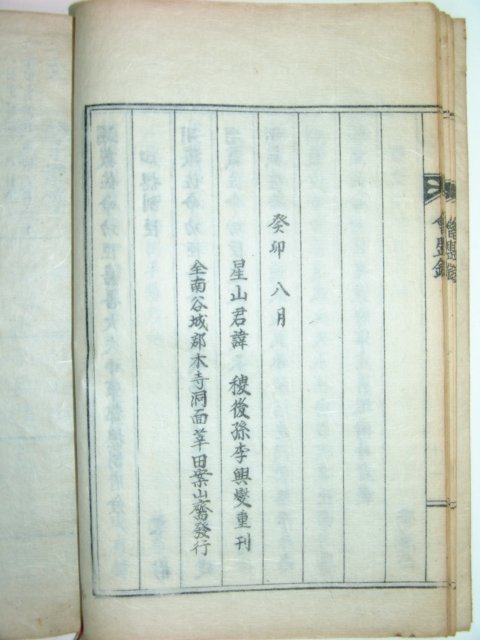 會盟錄
癸卯 八月
星山君諱 稷後孫李興燮重刊
全南谷城郡木寺洞面莘田案山齋發行